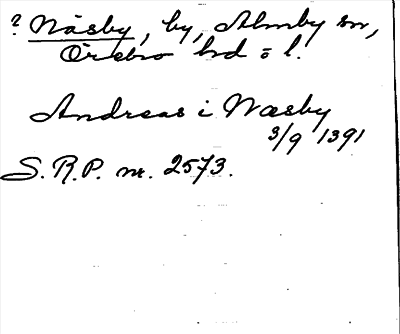 ? Näsby, by, Almby sn,
Örebro hd o l.
Andreas i Næsby
3/9 1391
S.R.P. nr. 2573.